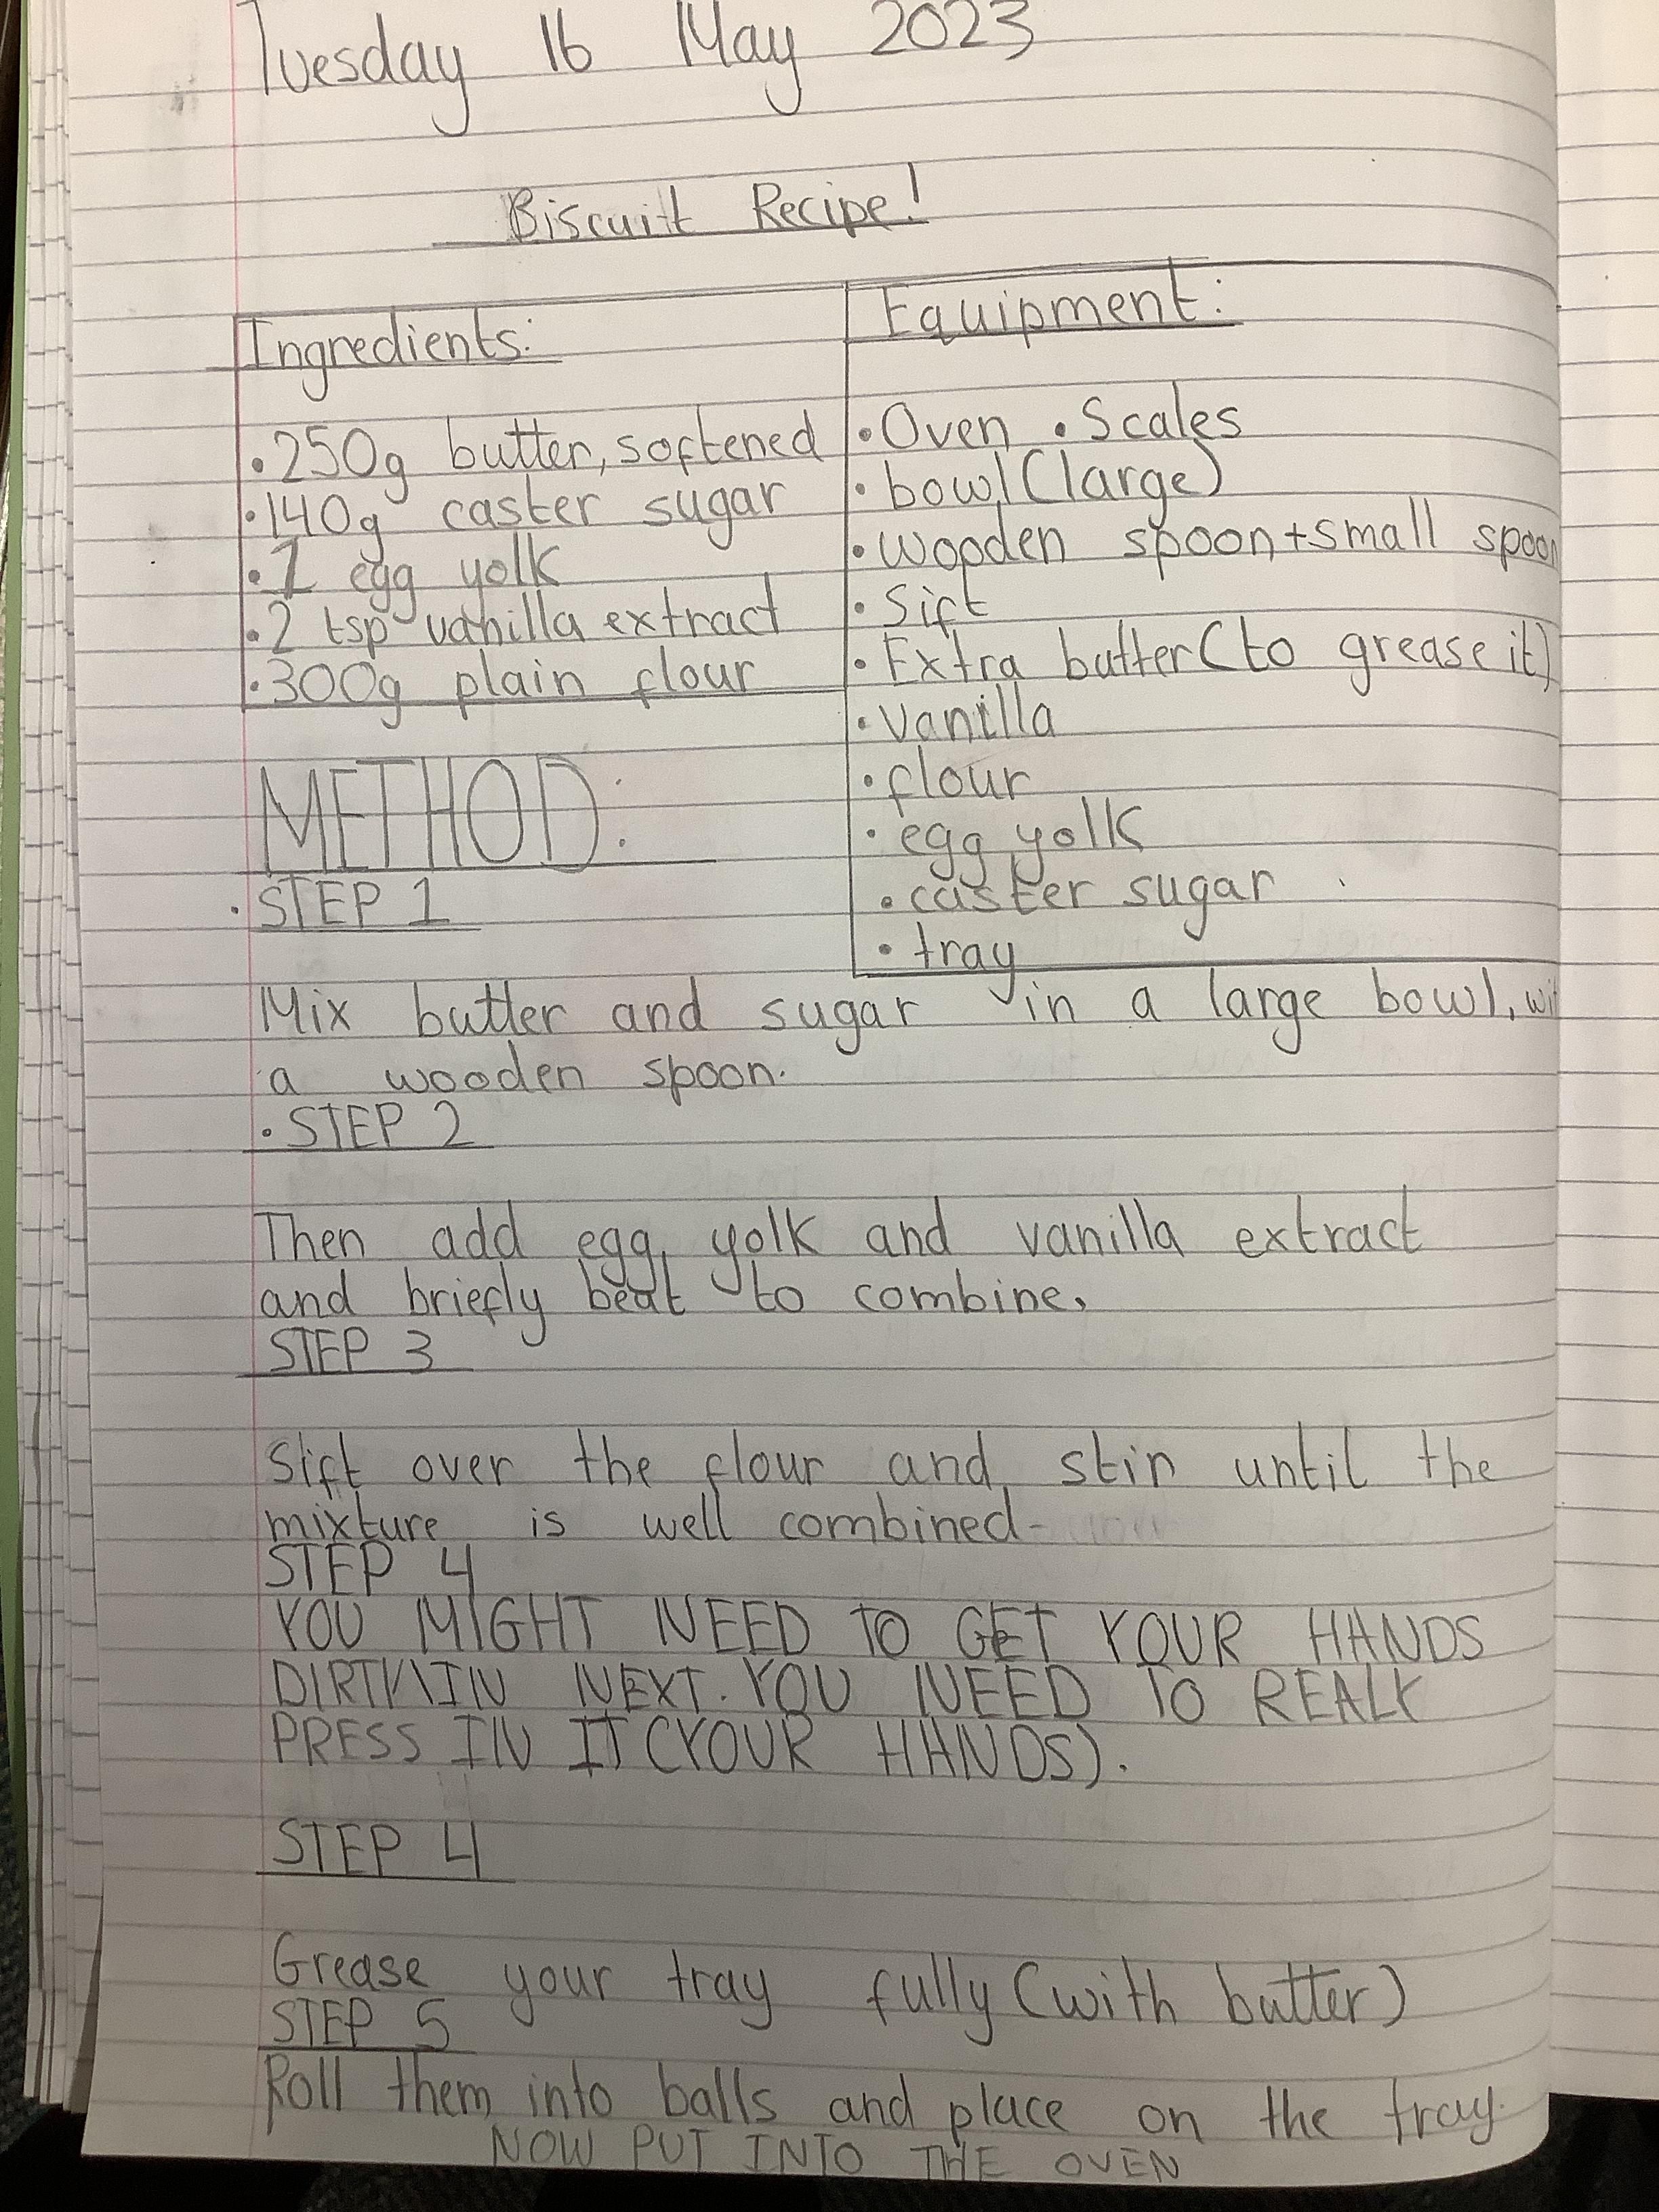 Tuesday 16 May 2023
Biscuit Recipe!
Ingredients:
• 250g butter, softened
• 140g caster sugar
• 1 egg yolk
• 2 tsp vanilla extract
• 300g plain flour
Equipment:
• Oven • Scales
• bowl (large)
• wooden spoon + small spoon
• Sift
• Extra butter (to grease it)
• vanilla
• flour
• egg yolk
• caster sugar
• tray
METHOD:
• STEP 1
Mix butter and sugar in a large bowl, wi
a wooden spoon.
• STEP 2
Then add egg yolk and vanilla extract
and briefly beat to combine.
STEP 3
Sift over the flour and stir until the
mixture is well combined-
STEP 4
YOU MIGHT NEED TO GET YOUR HANDS
IN NEXT. YOU NEED TO
PRESS IN IT (YOUR HANDS).
STEP 4
Grease your tray fully (with butter)
STEP 5
Roll them into balls and place on the tray.
NOW PUT INTO THE OVEN